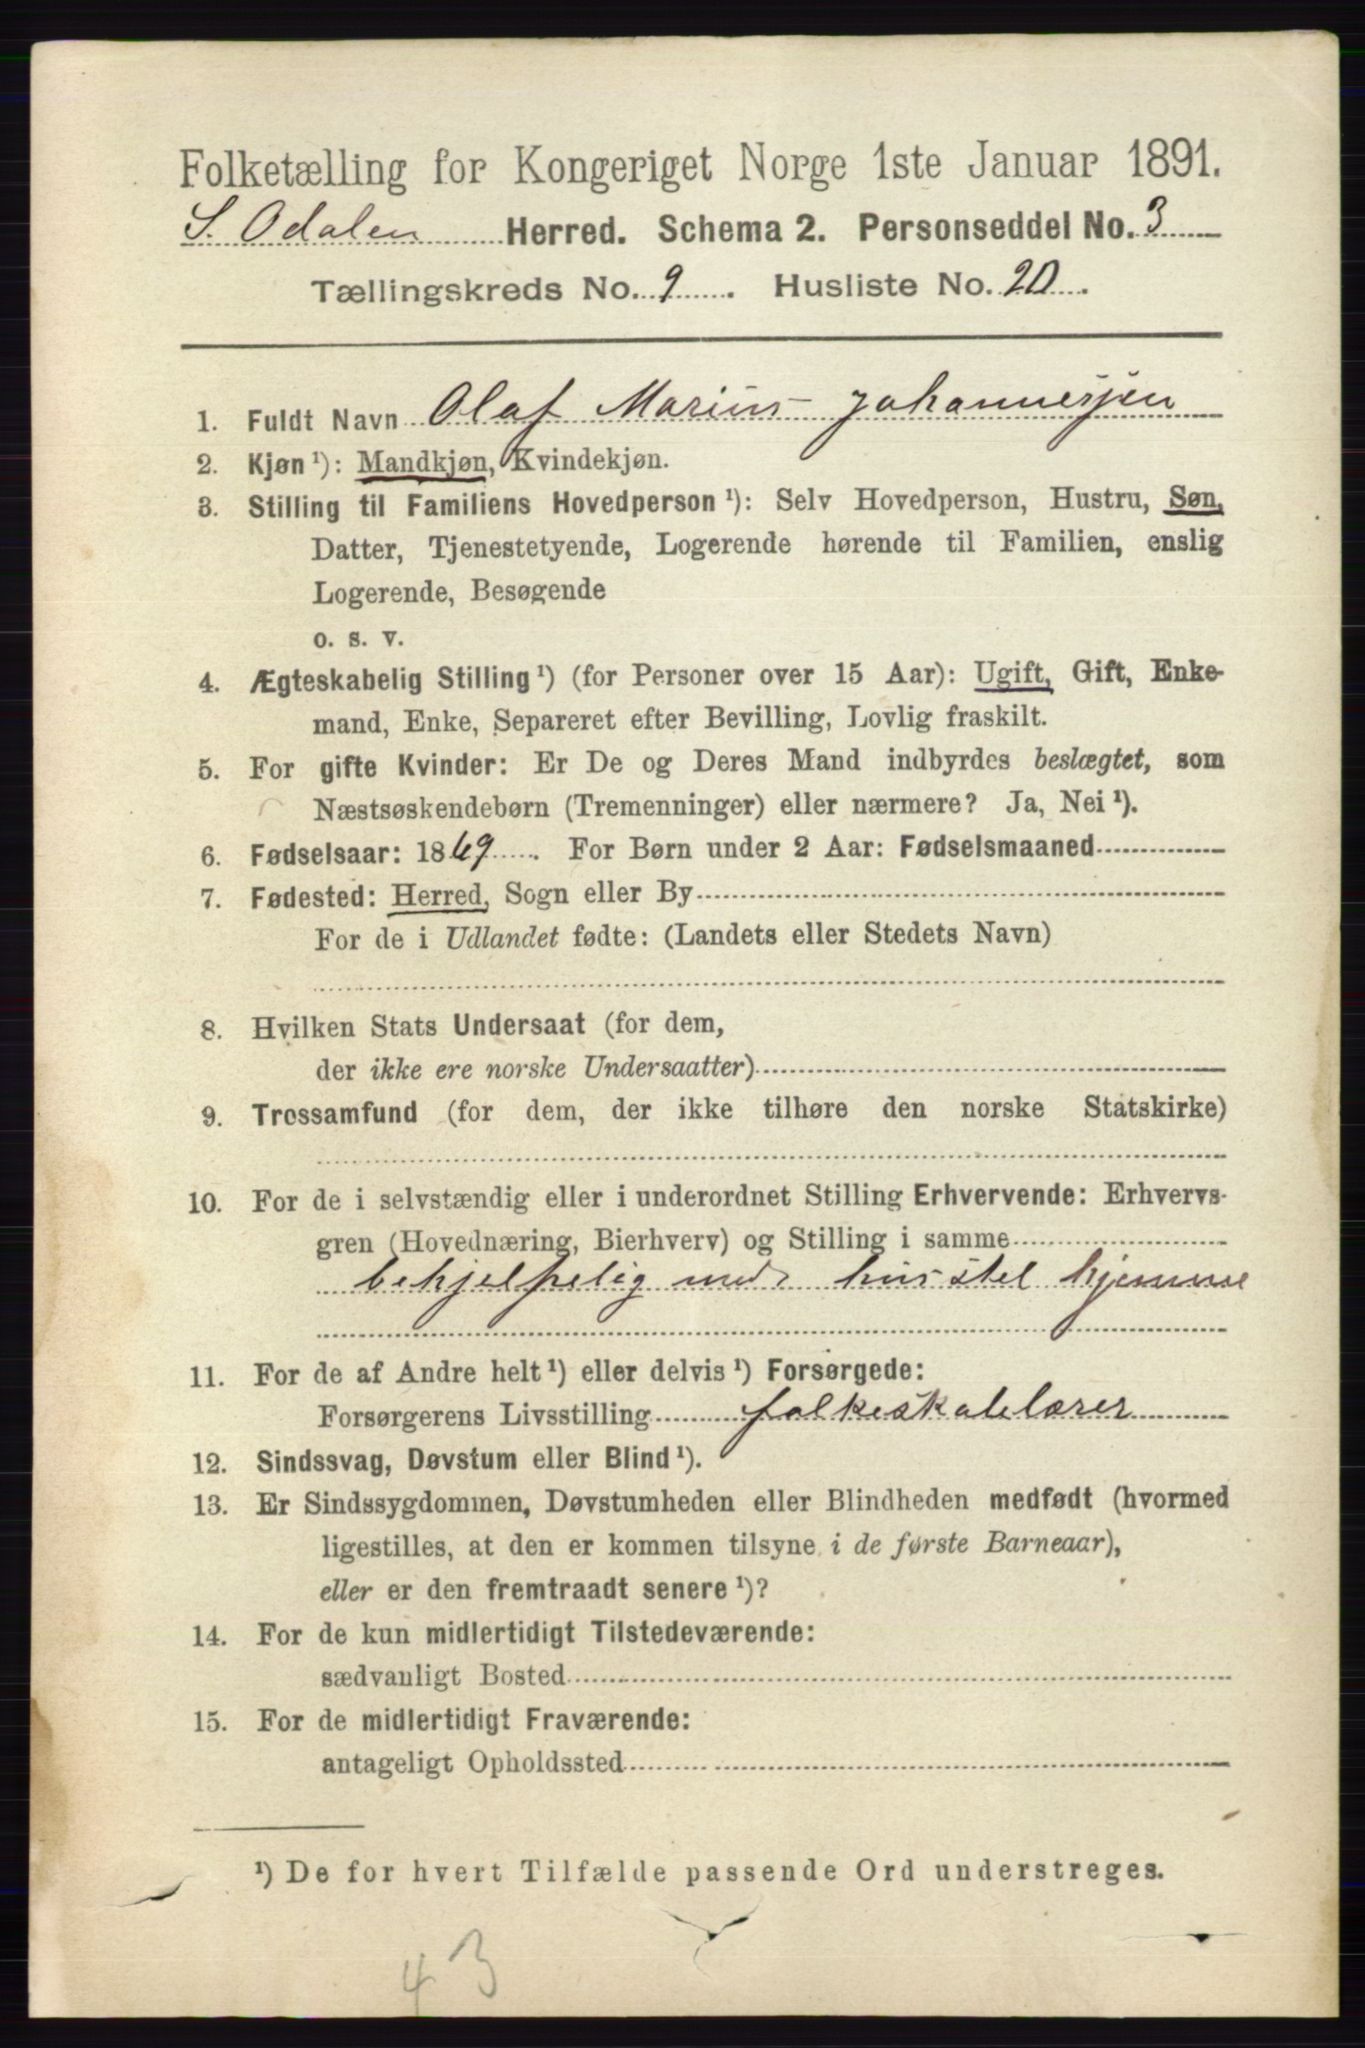 Folketælling for Kongeriget Norge 1ste Januar 1891.
S. Odalen Herred. Schema 2. Personseddel No. 3
Tællingskreds No. 9. Husliste No. 20.
1. Fuldt Navn Olaf Marius Johannessen
2. Kjøn ¹): Mandkjøn, Kvindekjøn.
3. Stilling til Familiens Hovedperson ¹): Selv Hovedperson, Hustru, Søn,
Datter, Tjenestetyende, Logerende hørende til Familien, enslig
Logerende, Besøgende
o. s. v.
4. Ægteskabelig Stilling ¹) (for Personer over 15 Aar): Ugift, Gift, Enke-
mand, Enke, Separeret efter Bevilling, Lovlig fraskilt.
5. For gifte Kvinder: Er De og Deres Mand indbyrdes beslægtet, som
Næstsøskendebørn (Tremenninger) eller nærmere? Ja, Nei ¹).
6. Fødselsaar: 1869. For Børn under 2 Aar: Fødselsmaaned
7. Fødested: Herred, Sogn eller By
For de i Udlandet fødte: (Landets eller Stedets Navn)
8. Hvilken Stats Undersaat (for dem,
der ikke ere norske Undersaatter)
9. Trossamfund (for dem, der ikke tilhøre den norske Statskirke)
10. For de i selvstændig eller i underordnet Stilling Erhvervende: Erhvervs-
gren (Hovednæring, Bierhverv) og Stilling i samme
behjelpelig med hus stel hjemme
11. For de af Andre helt ¹) eller delvis ¹) Forsørgede:
Forsørgerens Livsstilling folkeskolelærer
12. Sindssvag, Døvstum eller Blind ¹).
13. Er Sindssygdommen, Døvstumheden eller Blindheden medfødt (hvormed
ligestilles, at den er kommen tilsyne i de første Barneaar),
eller er den fremtraadt senere ¹)?
14. For de kun midlertidigt Tilstedeværende:
sædvanligt Bosted
15. For de midlertidigt Fraværende:
antageligt Opholdssted
¹) De for hvert Tilfælde passende Ord understreges.
43